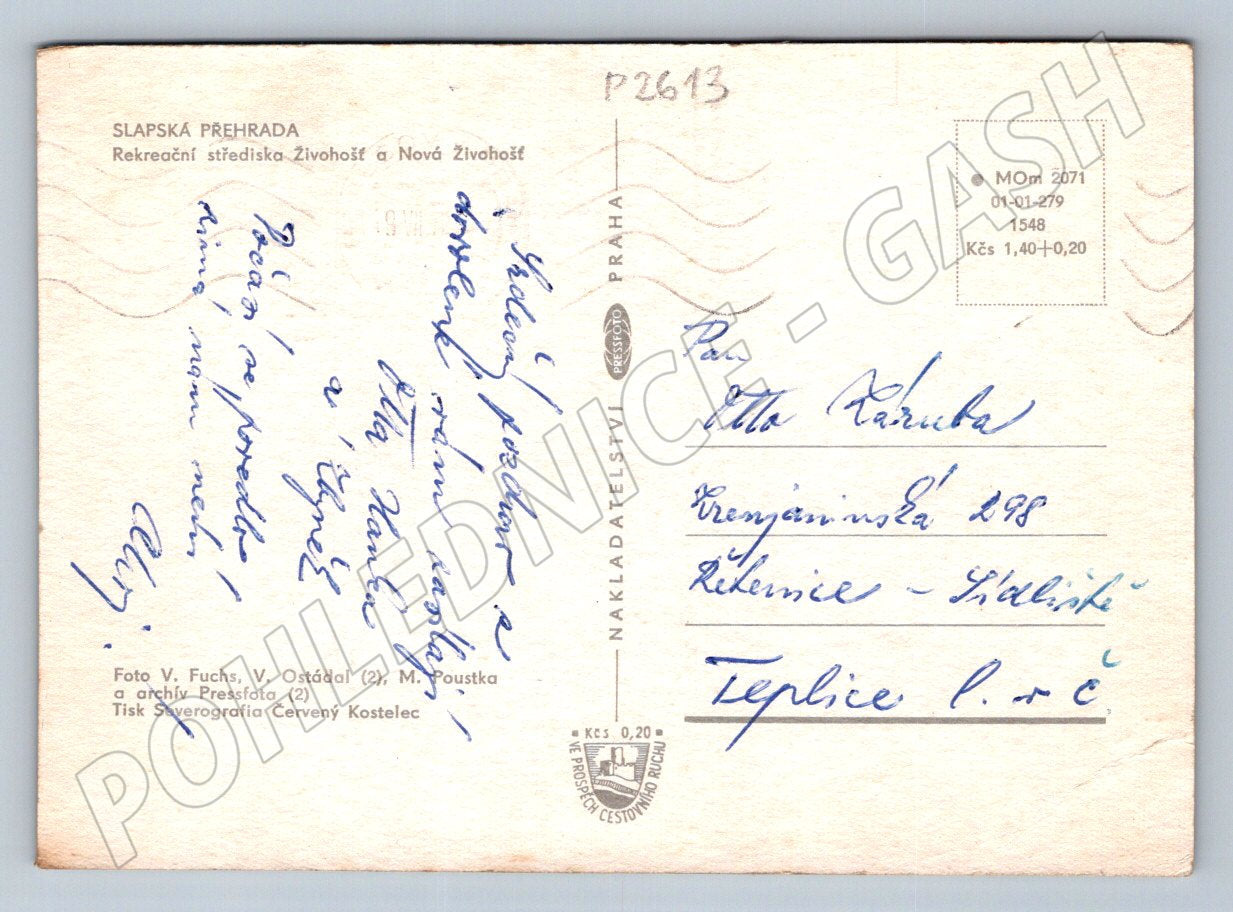 P2613
SLAPSKÁ PŘEHRADA
Rekreační střediska Živohošť a Nová Živohošť
Srdečný pozdrav z
dovolené vám
Hanka
a Zbyněk
Počasí se povedlo
zima, nám není
NAKLADATELSTVÍ PRESSFOTO PRAHA
MOm 2071
01-01-279
1548
Kčs 1,40+0,20
Pan
Otto Záruba
298
Řetenice - Sídliště
Teplice l. v Č
Foto V. Fuchs, V. Ostádal (2), M. Poustka
a archív Pressfota (2)
Tisk Severografia Červený Kostelec
Kčs 0,20
VE PROSPĚCH CESTOVNÍHO RUCHU
POHLEDNICE - GASH